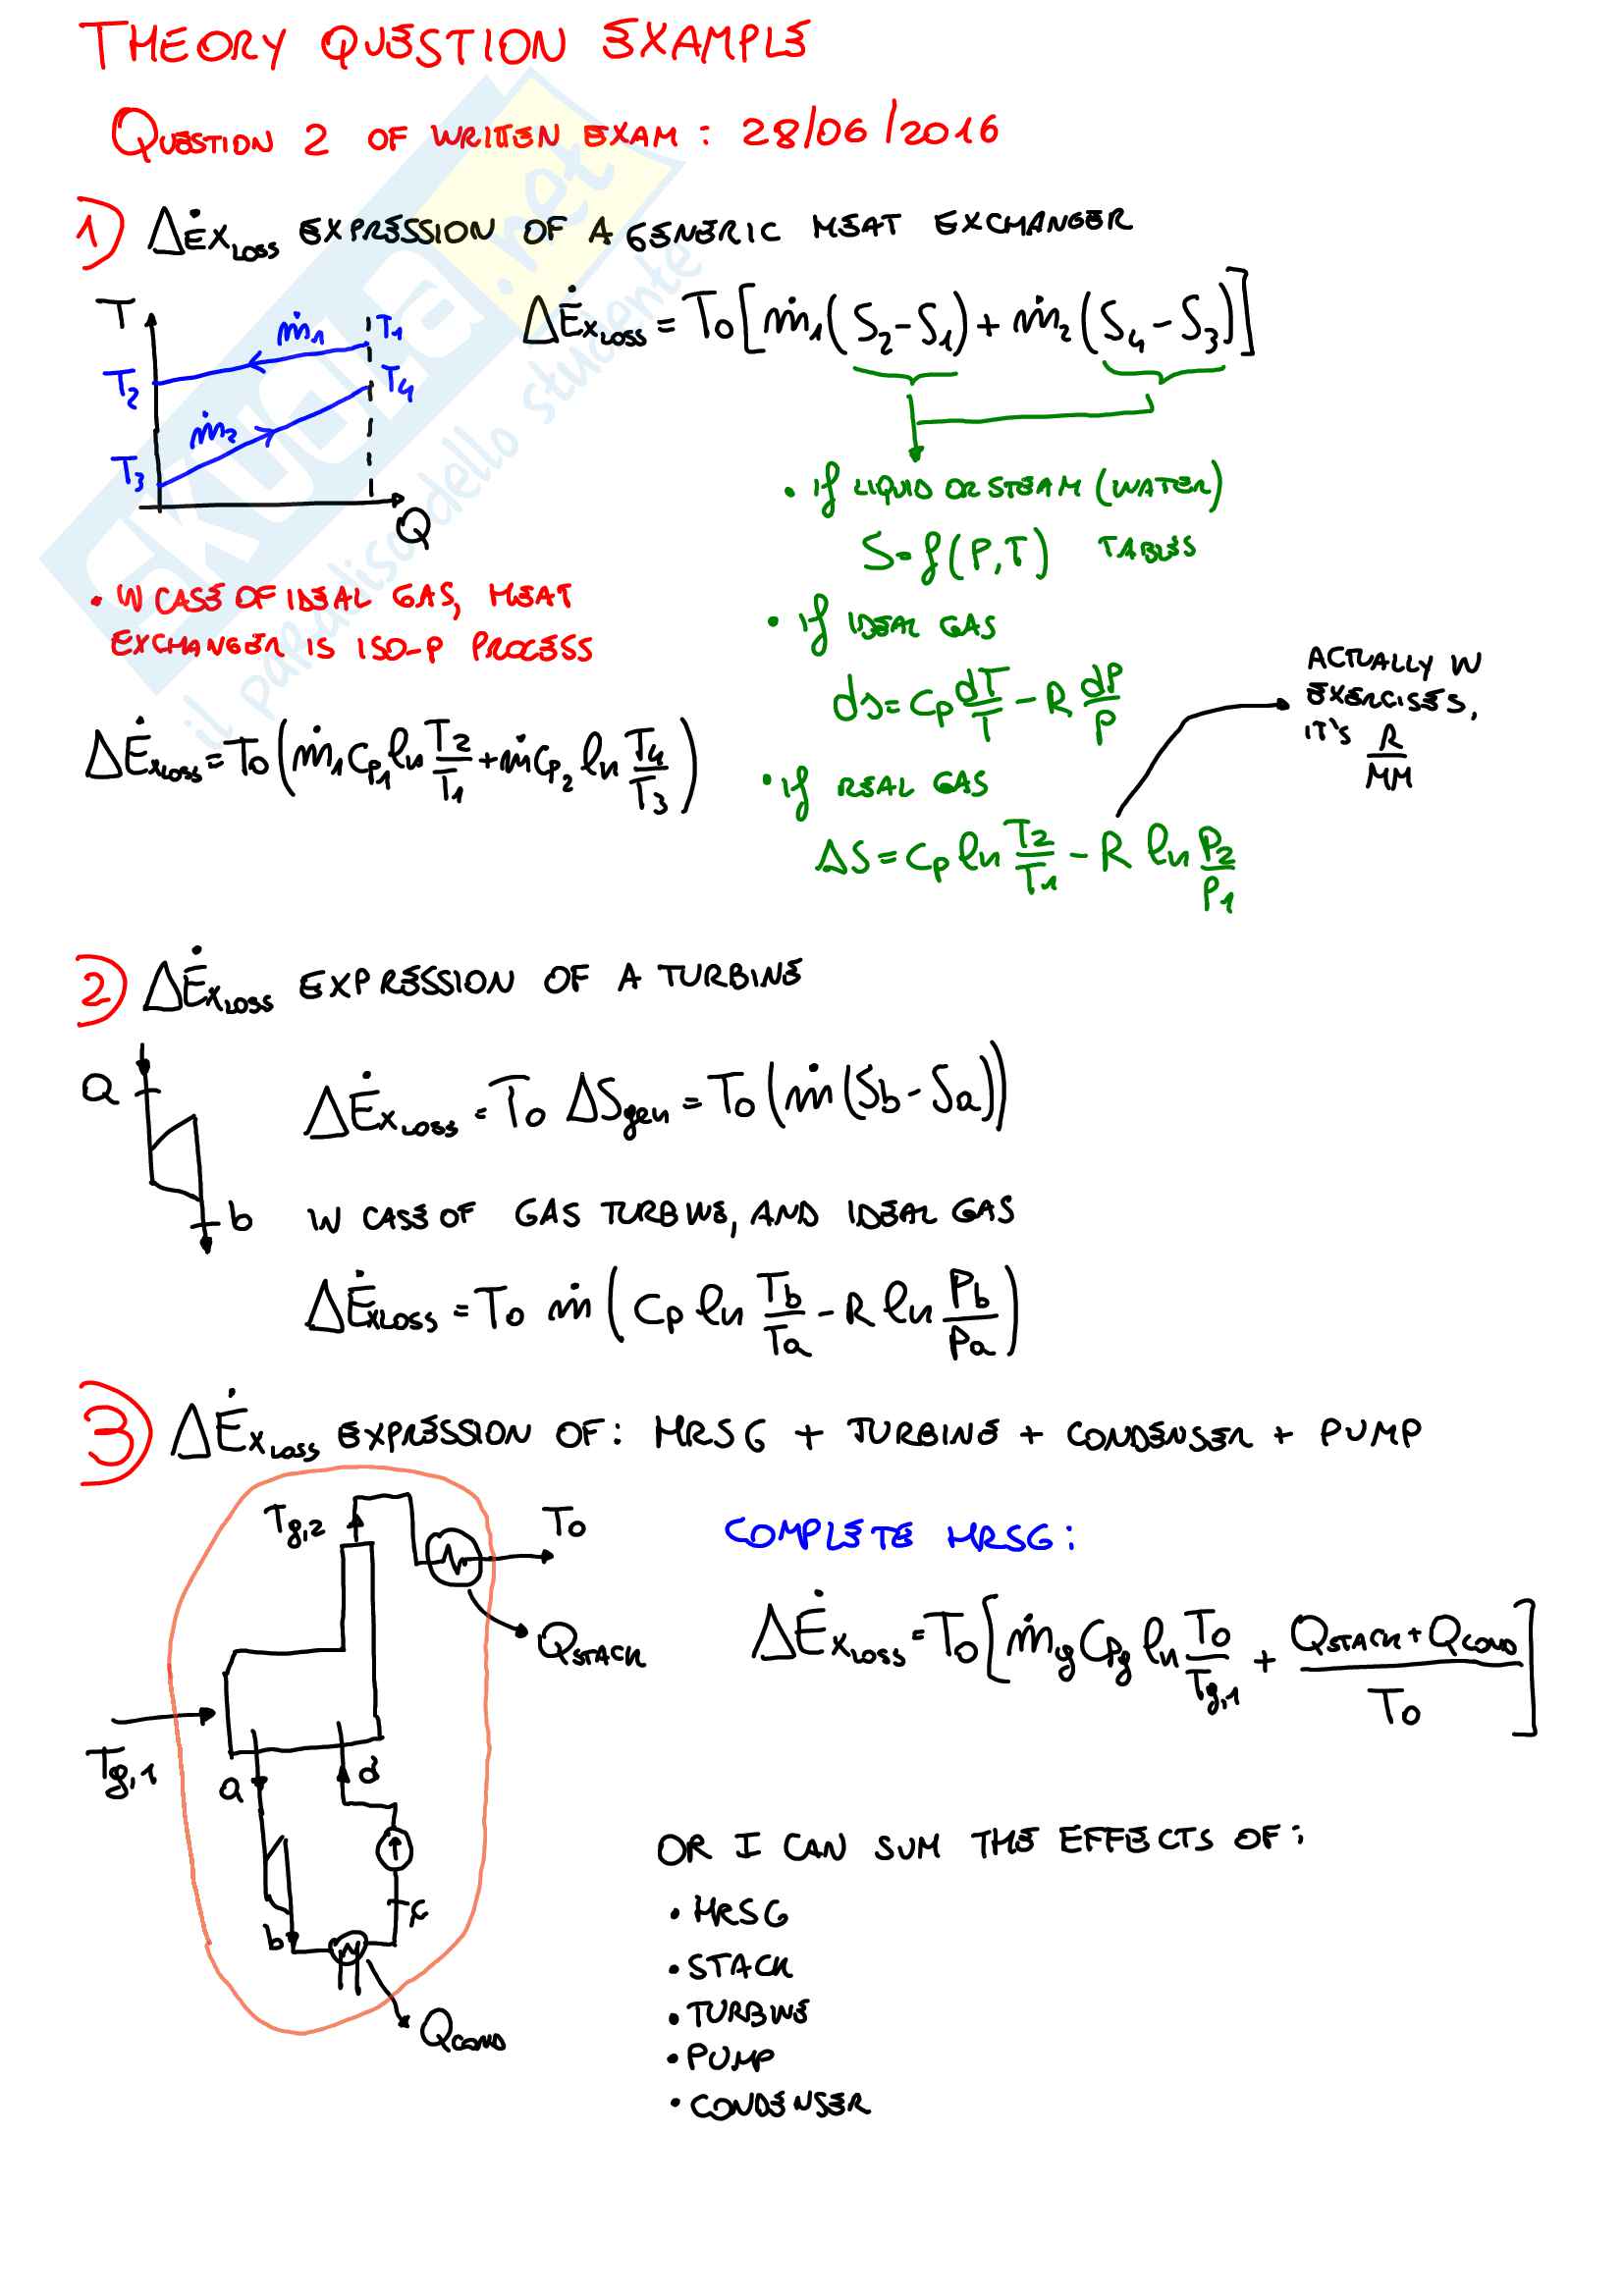 THEORY QUESTION EXAMPLE
QUESTION 2 OF WRITTEN EXAM: 28/06/2016
1) ΔĖx_LOSS EXPRESSION OF A GENERIC HEAT EXCHANGER
T
ṁ1
T1
T2
T4
ṁ2
T3
Q
ΔĖx_LOSS = T0[ṁ1(S2-S1)+ṁ2(S4-S3)]
• IF LIQUID OR STEAM (WATER)
S=f(P,T) TABLES
• IF IDEAL GAS
ds=cp dT/T - R dP/P
• IF REAL GAS
ΔS=cp ln T2/T1 - R ln P2/P1
ACTUALLY IN
EXERCISES,
IT'S R/MM
• IN CASE OF IDEAL GAS, HEAT
EXCHANGER IS ISO-P PROCESS
ΔĖx_LOSS=T0(ṁ1 cp1 ln T2/T1 + ṁ cp2 ln T4/T3)
2) ΔĖx_LOSS EXPRESSION OF A TURBINE
a
b
ΔĖx_LOSS = T0 ΔSgen = T0(ṁ(Sb-Sa))
IN CASE OF GAS TURBINE, AND IDEAL GAS
ΔĖx_LOSS = T0 ṁ(cp ln Tb/Ta - R ln Pb/Pa)
3) ΔĖx_LOSS EXPRESSION OF: HRSG + TURBINE + CONDENSER + PUMP
Tg,2
T0
QSTACK
Tg,1
a
d
b
c
QCOND
COMPLETE HRSG:
ΔĖx_LOSS=T0[ṁg cpg ln T0/Tg,1 + (QSTACK+QCOND)/T0]
OR I CAN SUM THE EFFECTS OF:
• HRSG
• STACK
• TURBINE
• PUMP
• CONDENSER
skuola.net
il paradiso dello studente